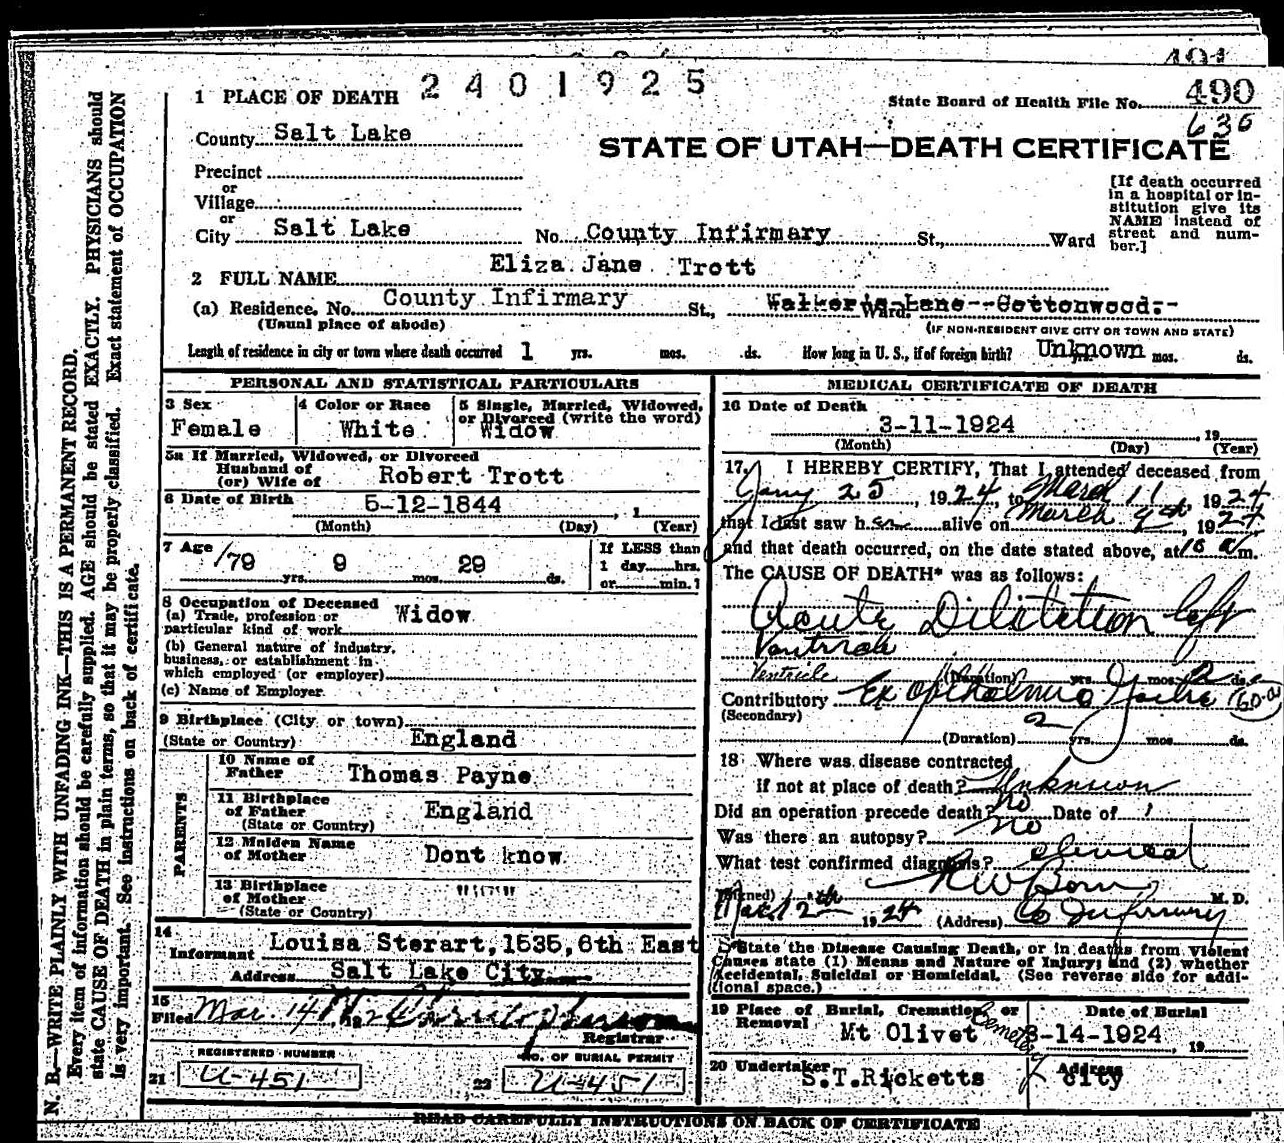 491
2401925
1 PLACE OF DEATH
State Board of Health File No. 490
636
County Salt Lake
STATE OF UTAH—DEATH CERTIFICATE
Precinct
or
Village
or
City Salt Lake No. County Infirmary St., Ward
[If death occurred in a hospital or in-
stitution give its
NAME instead of
street and num-
ber.]
2 FULL NAME Eliza Jane Trott
(a) Residence. No. County Infirmary St., Walker's Lane--Cottonwood.- Ward.
(Usual place of abode) (IF NON-RESIDENT GIVE CITY OR TOWN AND STATE)
Length of residence in city or town where death occurred 1 yrs. mos. ds. How long in U. S., if of foreign birth? Unknown yrs. mos. ds.
PERSONAL AND STATISTICAL PARTICULARS
3 Sex
Female
4 Color or Race
White
5 Single, Married, Widowed,
or Divorced (write the word)
Widow
5a If Married, Widowed, or Divorced
Husband of
(or) Wife of Robert Trott
6 Date of Birth 5-12-1844 , 1
(Month) (Day) (Year)
7 Age 79 yrs. 9 mos. 29 ds.
If LESS than
1 day hrs.
or min.?
8 Occupation of Deceased
(a) Trade, profession or
particular kind of work Widow
(b) General nature of industry,
business, or establishment in
which employed (or employer)
(c) Name of Employer
9 Birthplace (City or town)
(State or Country) England
PARENTS
10 Name of
Father Thomas Payne
11 Birthplace
of Father England
(State or Country)
12 Maiden Name
of Mother Dont know
13 Birthplace
of Mother """""""
(State or Country)
14
Informant Louisa Sterart, 1535, 6th East
Address Salt Lake City
15
Filed Mar. 14
Registrar
REGISTERED NUMBER
21 U-451
NO. OF BURIAL PERMIT
22 U-451
MEDICAL CERTIFICATE OF DEATH
16 Date of Death
3-11-1924 , 19
(Month) (Day) (Year)
17 I HEREBY CERTIFY, That I attended deceased from
Jany 25, 1924, to March 11 1924
that I last saw her alive on March 9th, 1924
and that death occurred, on the date stated above, at 10 a m.
The CAUSE OF DEATH* was as follows:
Acute Dilitation left
Ventricle
Ventricle (Duration) yrs. mos. 2 ds.
Contributory Exopthalmic Goitre 60-a
(Secondary)
(Duration) 2 yrs. mos. ds.
18 Where was disease contracted
if not at place of death? Unknown
Did an operation precede death? no Date of
Was there an autopsy? no
What test confirmed diagnosis? clinical
(Signed) M. D.
Mar 12th 1924 (Address) Co Infirmary
*State the Disease Causing Death, or in deaths from Violent
Causes state (1) Means and Nature of Injury; and (2) whether
Accidental, Suicidal or Homicidal. (See reverse side for addi-
tional space.)
19 Place of Burial, Cremation, or
Removal Mt Olivet Cemetery
Date of Burial
3-14-1924 , 19
20 Undertaker S.T.Ricketts
Address city
READ CAREFULLY INSTRUCTIONS ON BACK OF CERTIFICATE
N. B.—WRITE PLAINLY WITH UNFADING INK—THIS IS A PERMANENT RECORD.
Every item of information should be carefully supplied. AGE should be stated EXACTLY. PHYSICIANS should
state CAUSE OF DEATH in plain terms, so that it may be properly classified. Exact statement of OCCUPATION
is very important. See instructions on back of certificate.